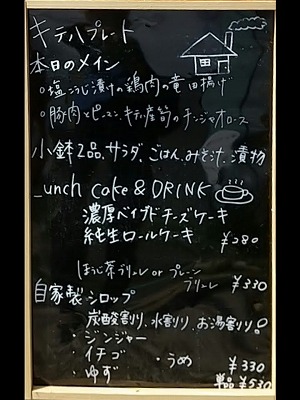 キテハプレート
本日のメイン
○塩こうじ漬けの鶏肉の竜田揚げ
○豚肉とピーマン、キテハ産筍のチンジャオロース
小鉢2品、サラダ、ごはん、みそ汁、漬物
_unch cake & DRINK
濃厚ベイクドチーズケーキ
純生ロールケーキ
¥280
ほうじ茶ブリュレ or プレーン
ブリュレ ¥330
自家製シロップ
炭酸割り、水割り、お湯割り!
・ジンジャー
・イチゴ ・うめ
・ゆず ¥330
単品¥530